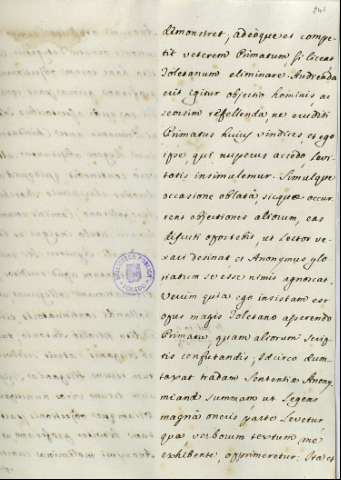 241
dimonstret, adeòque et compe-
tit veterem Primatum, si liceat
Toletanum eliminare. Audienda
erit igitur objectio hominis, ac
seorsim refellenda ne eruditi
Primatus huius vindices, et ego
ipse, qui nuperus accedo, levi-
tatis insimulemur. Simulque
occasione oblatâ, sicquæ occur-
rens objectiones aliorum, eas
discuti oportebit, ut Lector ve-
xari desinat et Anonymus glo-
riatum se esse nimis agnoscat.
Verum quia ego insistam est
opus magis Toletano asserendo
Primatu, quam aliorum scrip-
tis confutandis; idcirco dum-
taxat tradam sententiæ Anony-
mianæ summam ut Legens
magnâ oneris parte levetur
quâ verborum textum, me
exhibente, opprimeretur. Ita et
BIBLIOTECA PUBLICA
TOLEDO